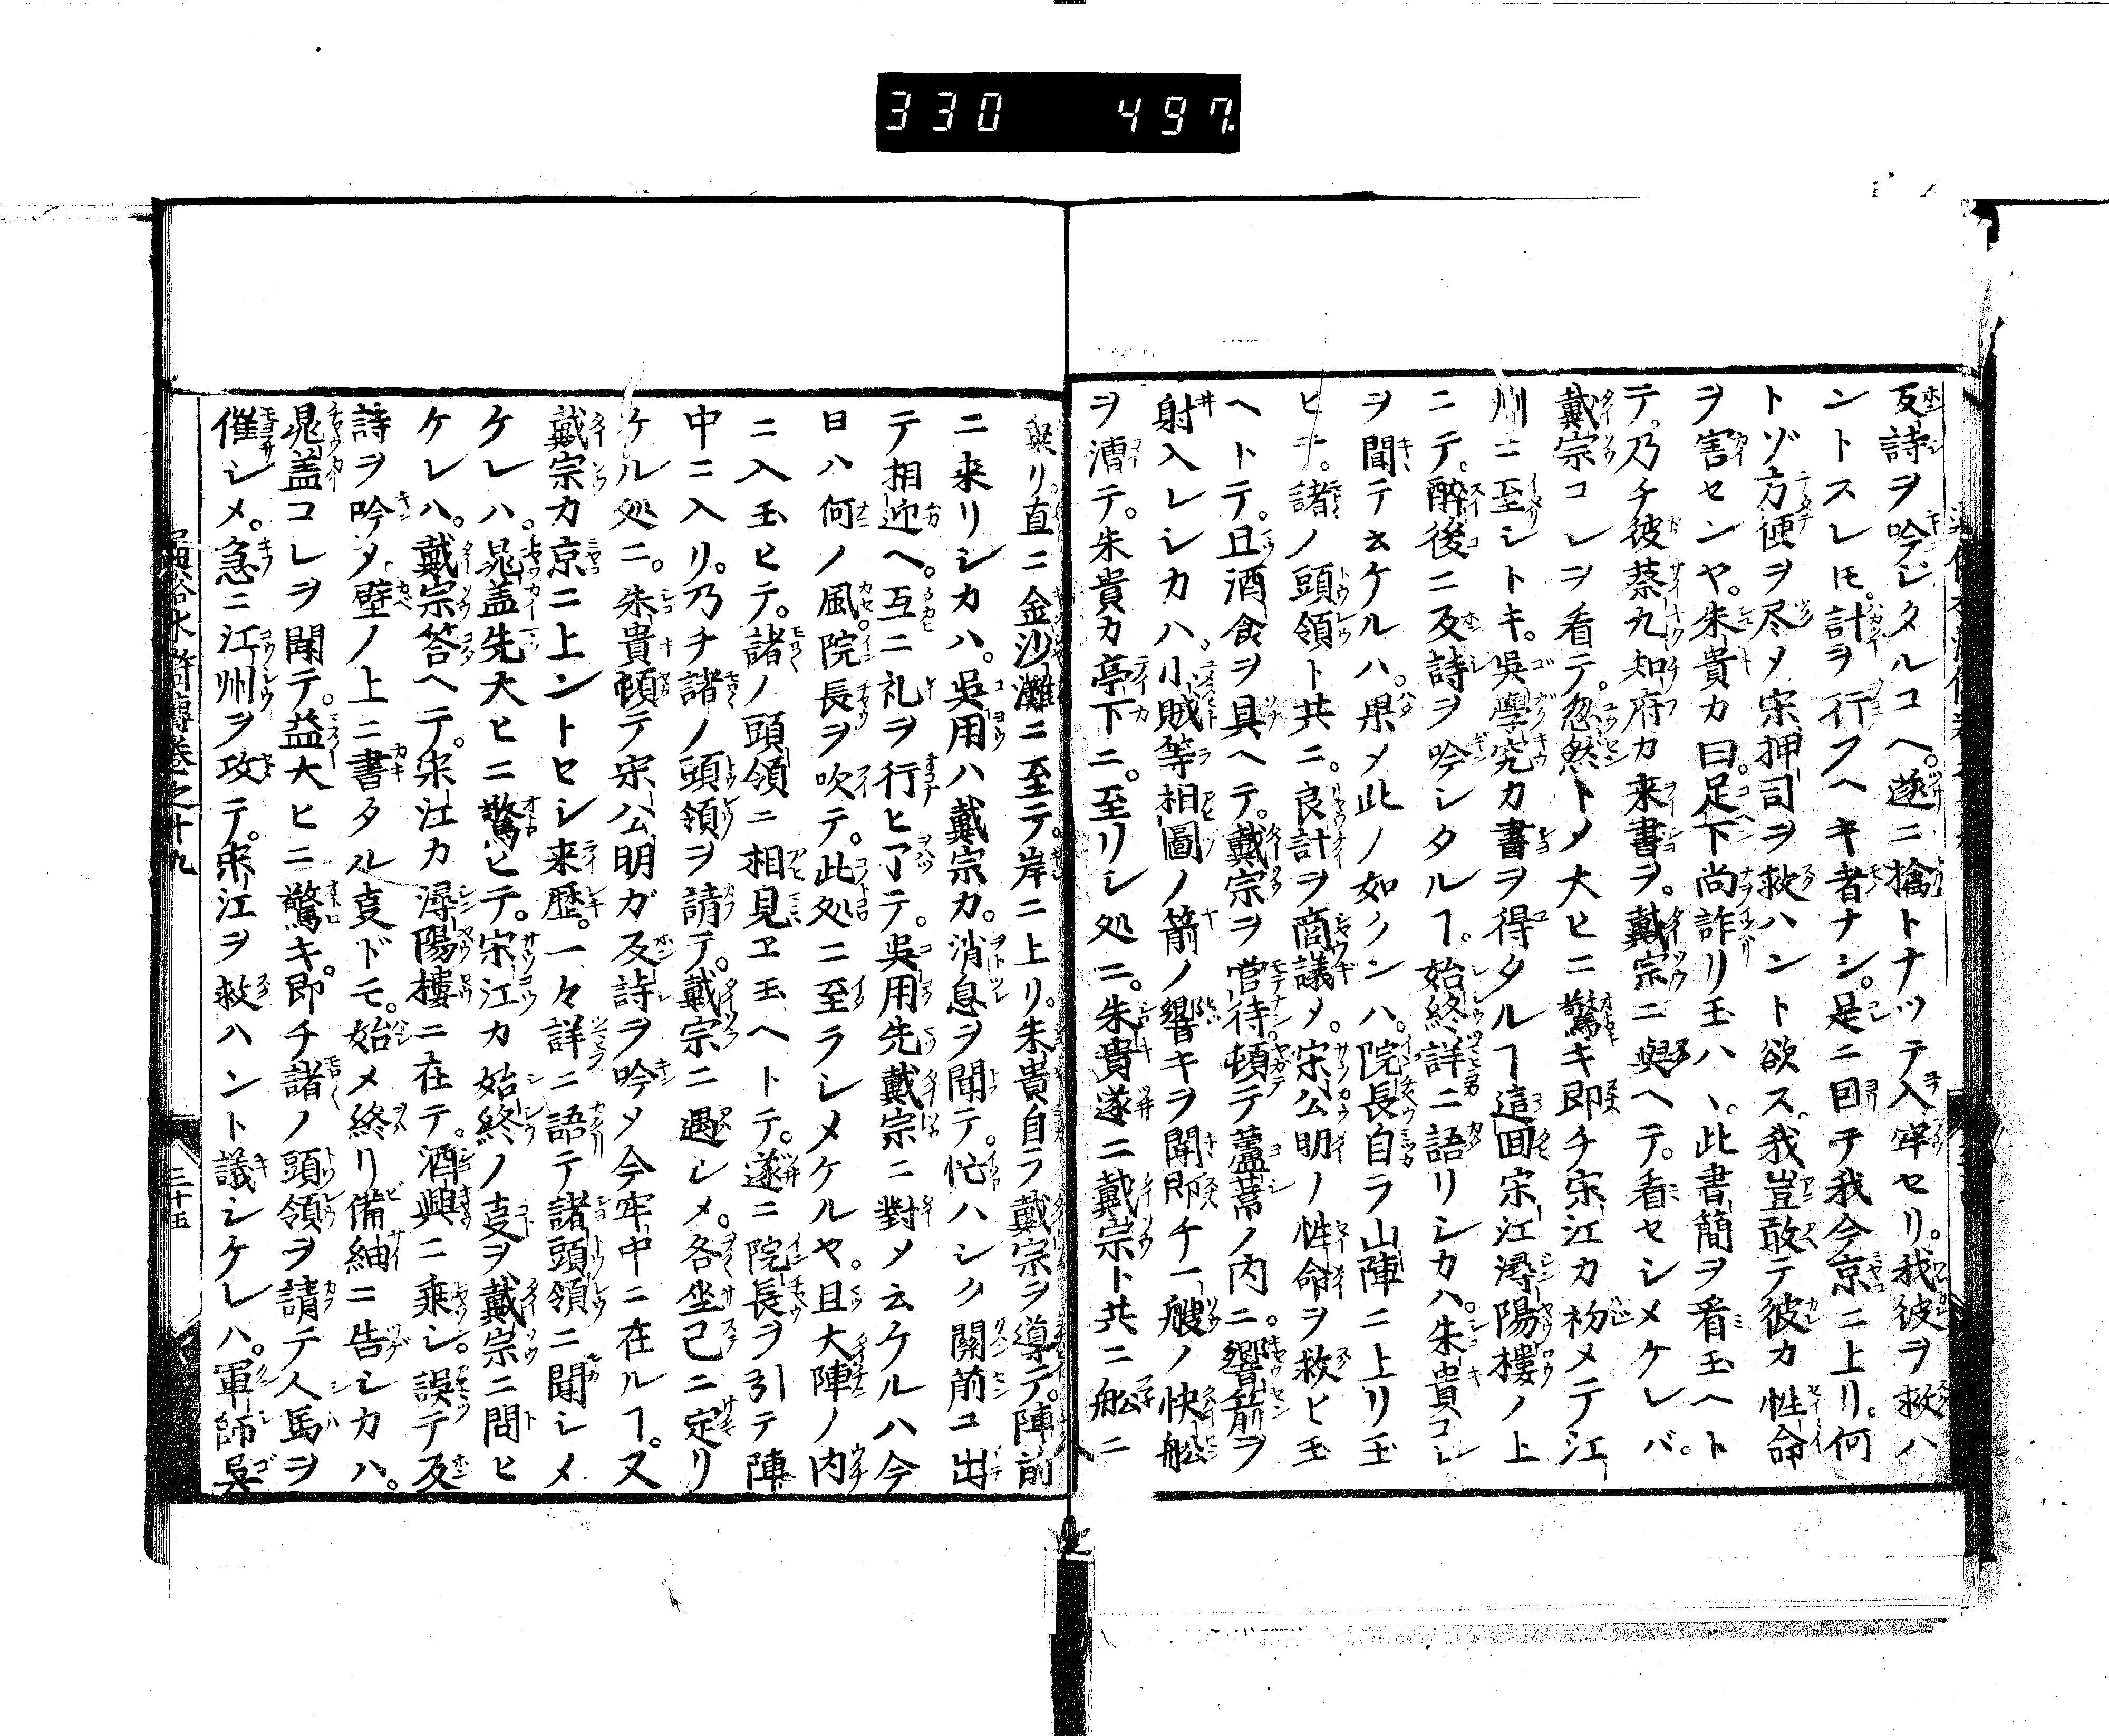 330 497
反詩ヲ吟シタルコヘ。遂ニ擒トナッテ入牢セリ。我彼ヲ救ハ
ントスレ𪜈。計ヲ行フヘキ者ナシ。是ニ回テ我今京ニ上リ。何
トゾ方便ヲ尽メ宋押司ヲ救ハント欲ス。我豈敢テ彼カ性命
ヲ害センヤ。朱貴カ曰。足下尚詐リ玉ハヽ。此書簡ヲ看玉ヘト
テ。乃チ彼蔡九知府カ来書ヲ。戴宗ニ與ヘテ。看セシメケレバ。
戴宗コレヲ看テ。忽然トメ大ヒニ驚キ即チ宋江カ初メテ江
州ニ至シトキ。吳學究カ書ヲ得タルヿ這回宋江潯陽樓ノ上
ニテ。醉後ニ反詩ヲ吟シタルヿ。始終詳ニ語リシカハ。朱貴コレ
ヲ聞テ云ケルハ。果メ此ノ如クンハ。院長自ラ山陣ニ上リ玉
ヒテ。諸ノ頭領ト共ニ。良計ヲ商議メ。宋公明ノ性命ヲ救ヒ玉
ヘトテ。且酒食ヲ具ヘテ。戴宗ヲ管待頓テ蘆葦ノ内ニ。響箭ヲ
射入レシカハ。小賊等相圖ノ箭ノ響キヲ聞即チ一艘ノ快舩
ヲ漕テ。朱貴カ亭下ニ。至リシ処ニ。朱貴遂ニ戴宗ト共ニ舩ニ
乗リ直ニ金沙灘ニ至テ。岸ニ上リ。朱貴自ラ戴宗ヲ導テ。陣前
ニ来リシカハ。吳用ハ戴宗カ。消息ヲ聞テ。忙ハシク關前ニ出
テ相迎ヘ。互ニ礼ヲ行ヒ了テ。吳用先戴宗ニ對メ云ケルハ今
日ハ何ノ風院長ヲ吹テ。此処ニ至ラシメケルヤ。且大陣ノ内
ニ入玉ヒテ。諸ノ頭領ニ相見ヱ玉ヘトテ。遂ニ院長ヲ引テ陣
中ニ入リ。乃チ諸ノ頭領ヲ請テ。戴宗ニ遇シメ。各坐已ニ定リ
ケル処ニ。朱貴頓テ宋公明ガ反詩ヲ吟メ今牢中ニ在ルヿ。又
戴宗カ京ニ上ントセシ来歴。一々詳ニ語テ諸頭領ニ聞シメ
ケレハ。晁盖先大ヒニ驚ヒテ。宋江カ始終ノ㕝ヲ戴宗ニ問ヒ
ケレハ。戴宗答ヘテ。宋江カ潯陽樓ニ在テ。酒興ニ乗シ。誤テ反
詩ヲ吟メ壁ノ上ニ書タル㕝ドモ。始メ終リ備細ニ告シカハ。
晁盖コレヲ聞テ。益大ヒニ驚キ。即チ諸ノ頭領ヲ請テ人馬ヲ
催シメ。急ニ江州ヲ攻テ。宋江ヲ救ハント議シケレハ。軍師吳
通俗水滸傳卷之十九
三十五